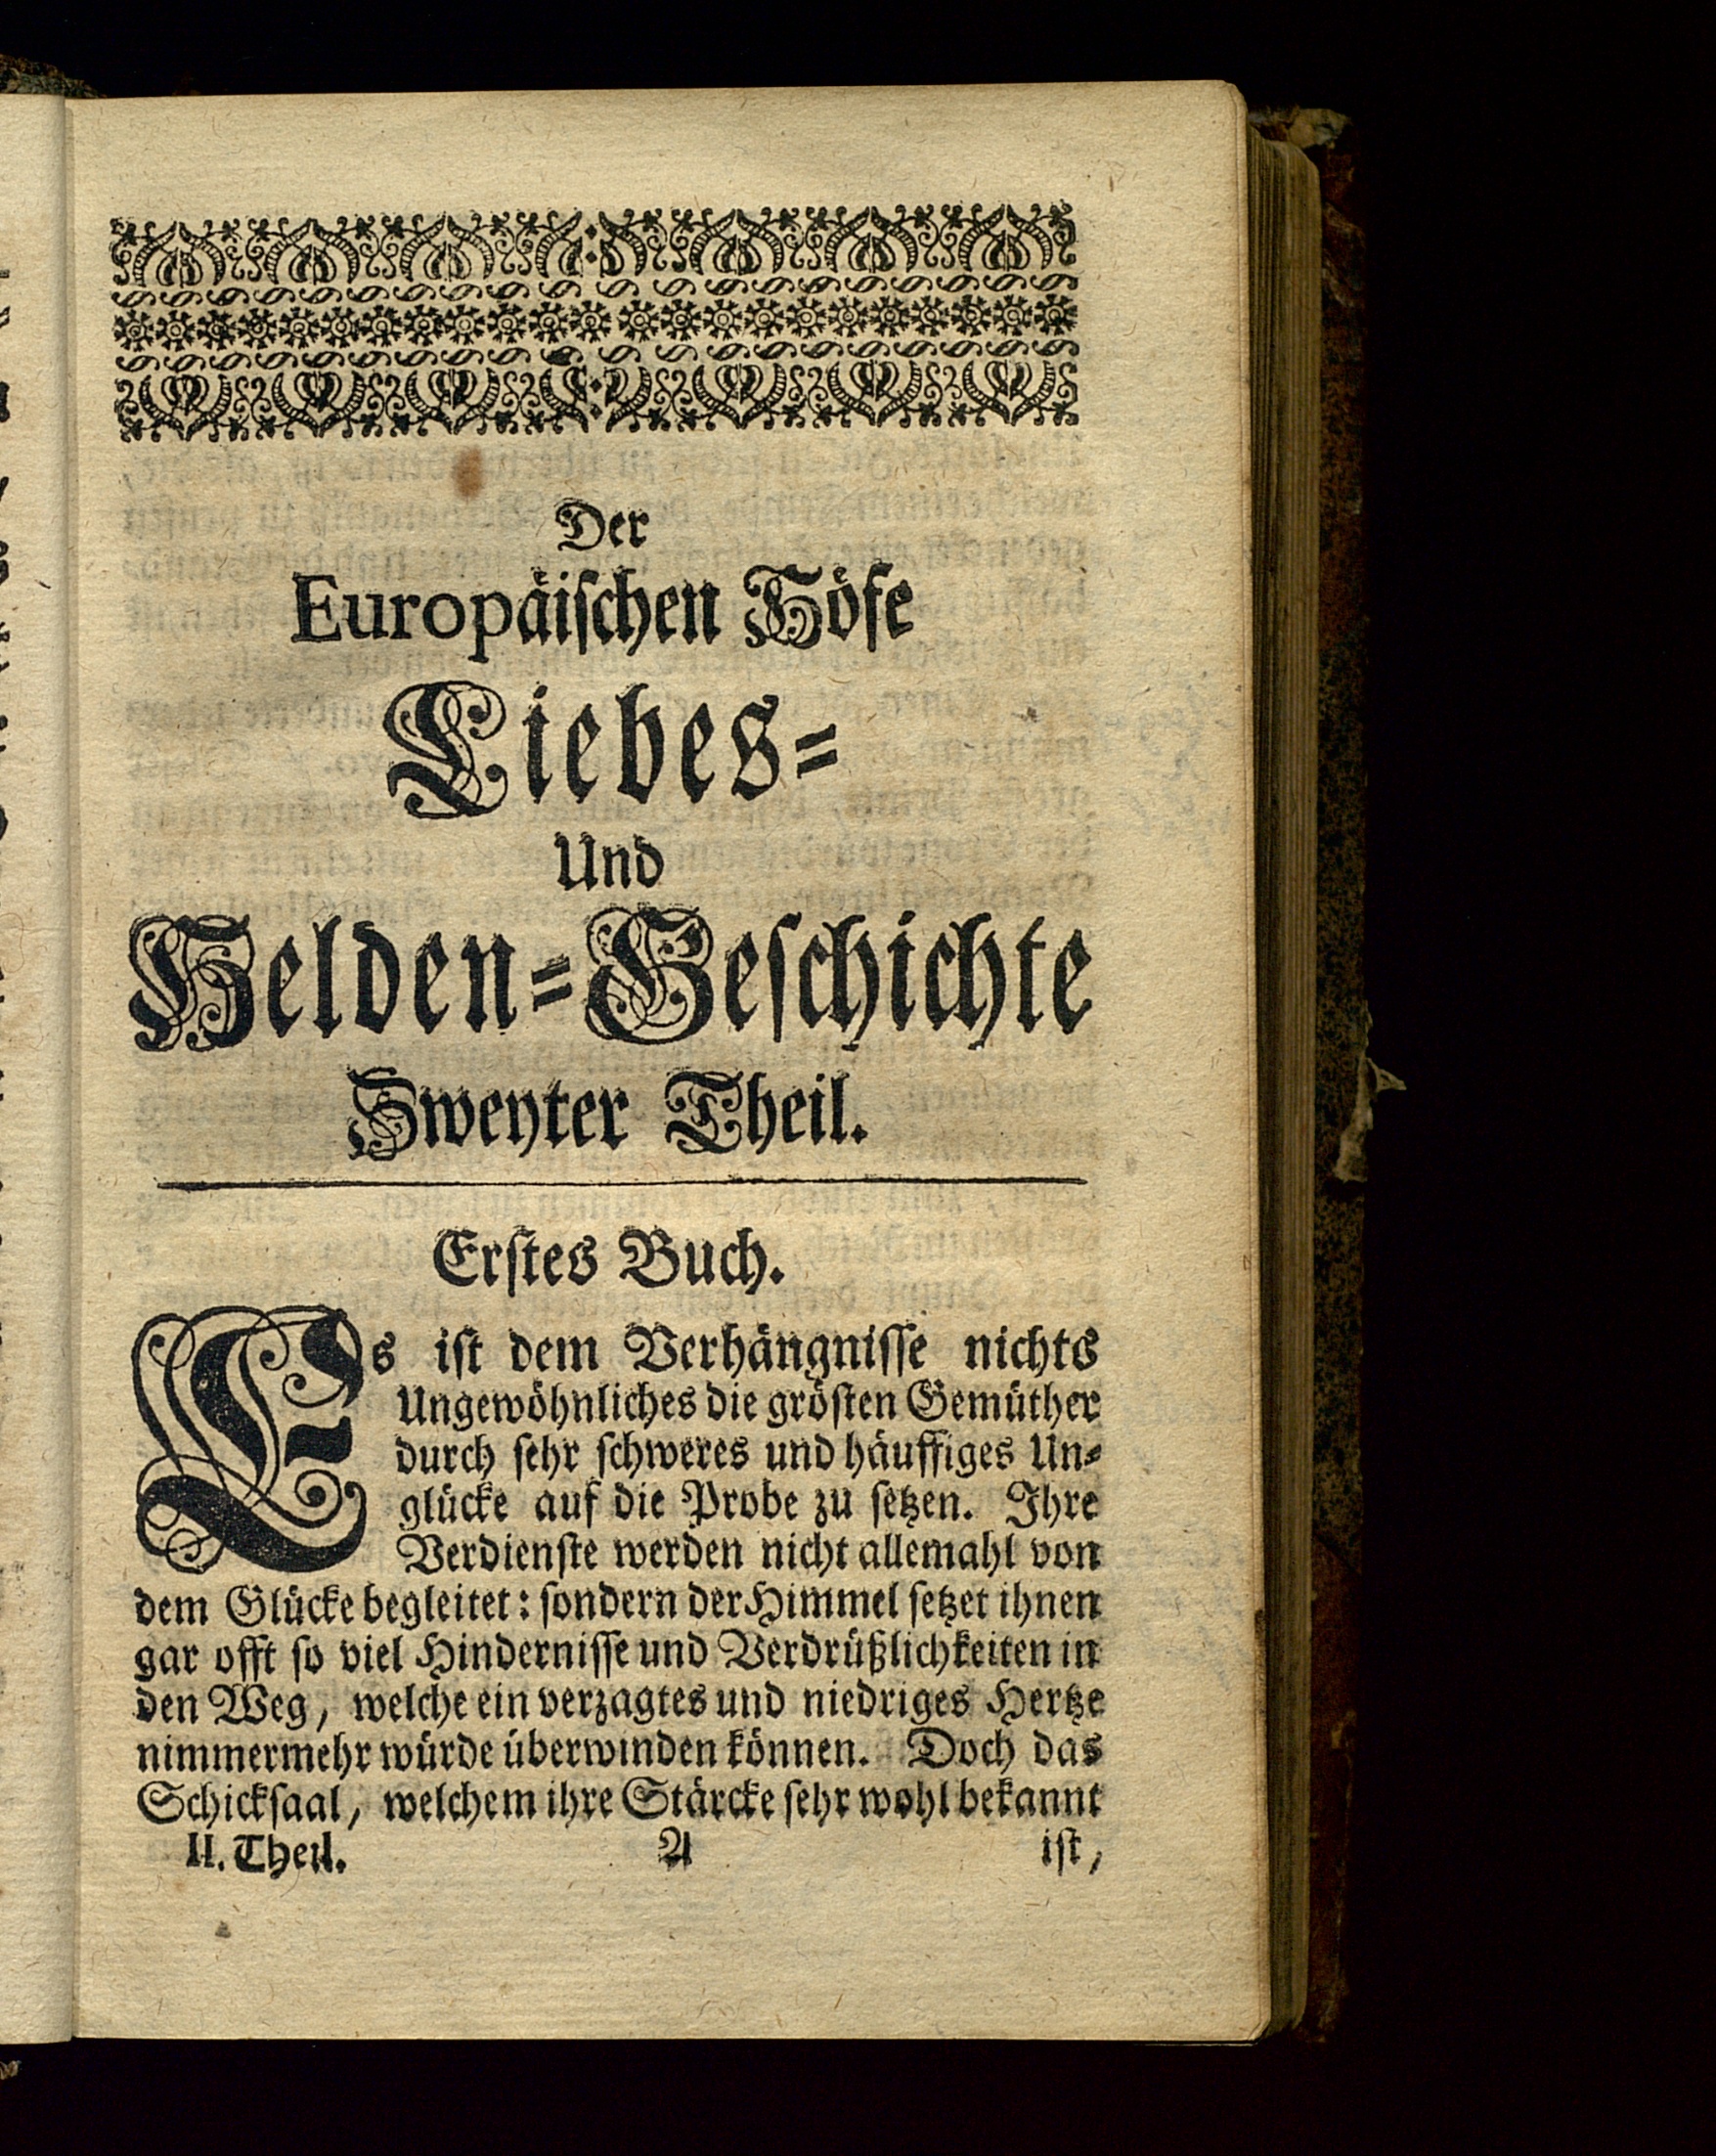 Der
Europäiſchen Höfe
Liebes-
Und
Helden-Geſchichte
Zweyter Theil.
Erſtes Buch.
Es iſt dem Verhängniſſe nichts
Ungewöhnliches die gröſten Gemüther
durch ſehr ſchweres und häuffiges Un-
glücke auf die Probe zu ſetzen. Ihre
Verdienſte werden nicht allemahl von
dem Glücke begleitet: ſondern der Himmel ſetzet ihnen
gar offt ſo viel Hinderniſſe und Verdrüßlichkeiten in
den Weg, welche ein verzagtes und niedriges Hertze
nimmermehr würde überwinden können. Doch das
Schickſaal, welchem ihre Stärcke ſehr wohl bekannt
II. Theil. A iſt,